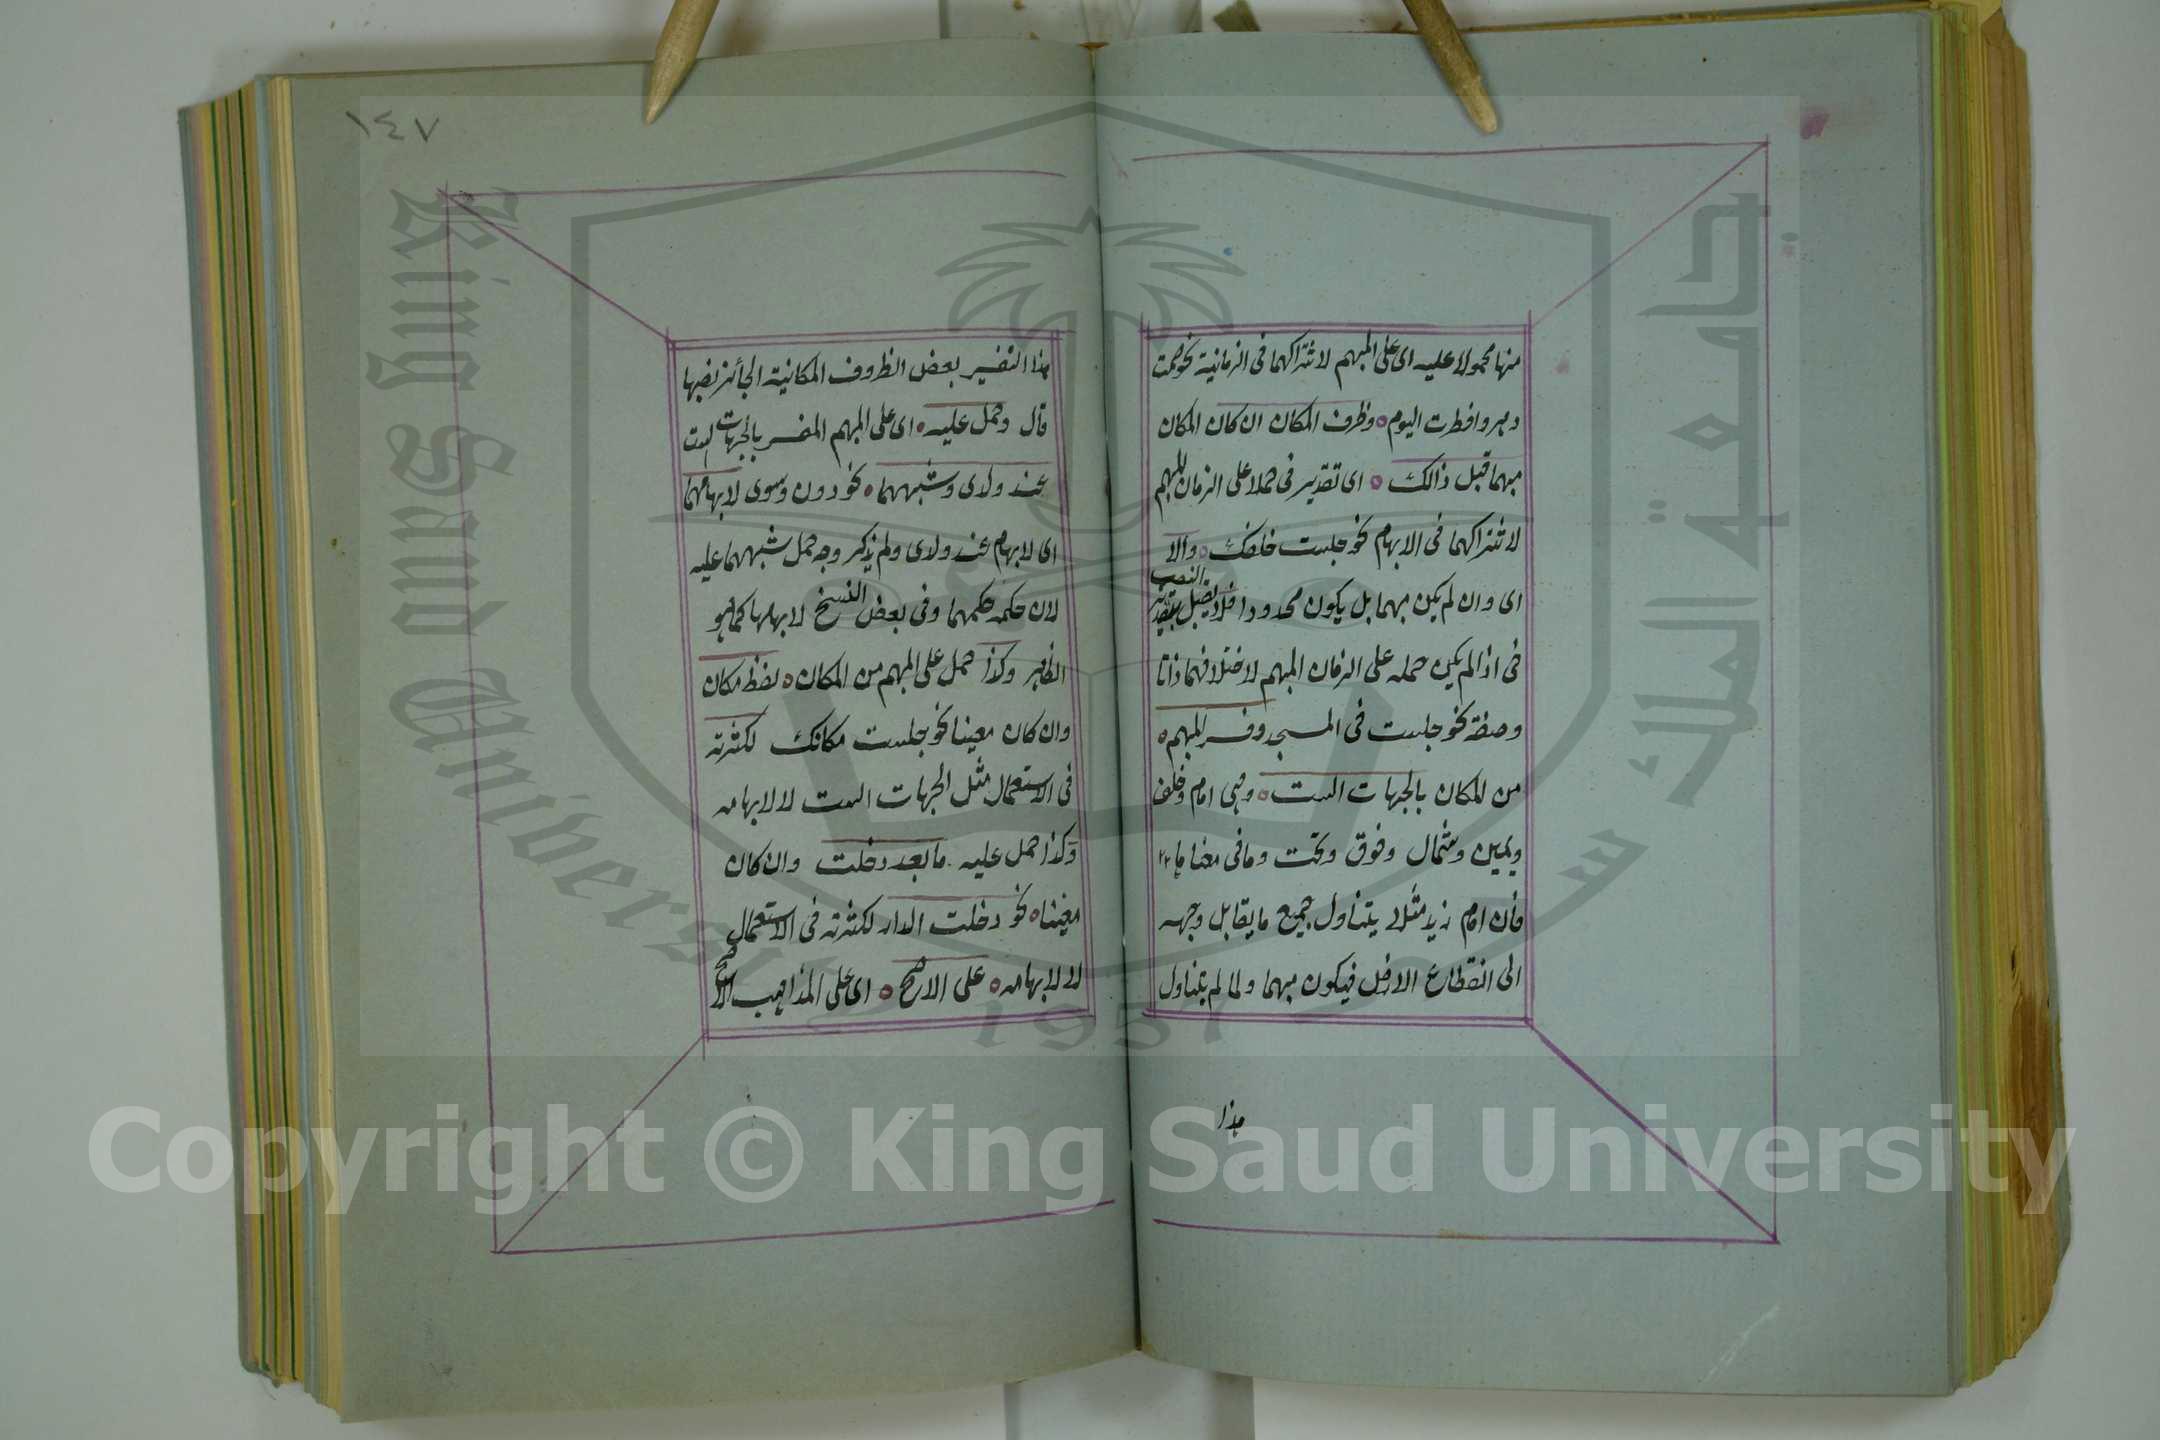 منها محمولا عليه اى على المبهم لاشتراكهما فى الزمانية نحو صمت
دهرا وافطرت اليوم وظرف المكان ان كان المكان
مبهما قبل ذالك اى تقدير فى حملا على الزمان المبهم
لاشتراكهما فى الابهام نحو جلست خلفك والا
اى وان لم يكن مبهما بل يكون محدودا فلا يقبل النصب بتقدير
فى اذ لم يكن حمله على الزمان المبهم لاختلافهما ذاتا
وصفة نحو جلست فى المسجد وفسر المبهم
من المكان بالجهات الست وهى امام وخلف
ويمين وشمال وفوق وتحت وما فى معناها
فان امام زيد مثلا يتناول جميع ما يقابل وجهه
الى انقطاع الارض فيكون مبهما ولما لم يتناول
هذا
١٤٧
هذا التفسير بعض الظروف المكانية الجائز نصبها
قال وحمل عليه اى على المبهم المفسر بالجهات الست
عند ولدى وشبههما نحو دون وسوى لابهامهما
اى لابهام عند ولدى ولم يذكر وجه حمل شبههما عليه
لان حكمه حكمهما وفى بعض النسخ لابهامها كما هو
الظاهر وكذا حمل على المبهم من المكان لفظ مكان
وان كان معينا نحو جلست مكانك لكثرته
فى الاستعمال مثل الجهات الست لا لابهامه
وكذا حمل عليه ما بعد دخلت وان كان
معينا نحو دخلت الدار لكثرته فى الاستعمال
لا لابهامه على الاصح اى على المذاهب الاصح
King Saud University
جامعة الملك سعود
1957
Copyright © King Saud University